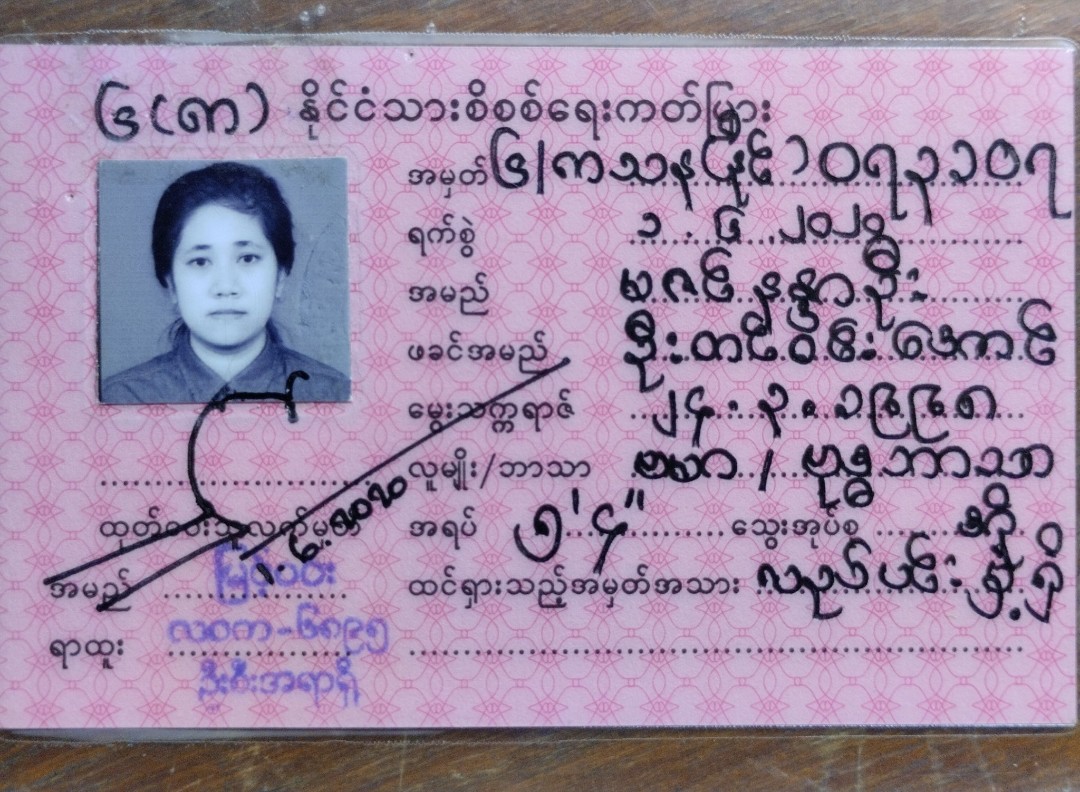 နိုင်ငံသားစိစစ်ရေးကတ်ပြား
အမှတ် ၆/ကသန(နိုင်)၀၇၃၁၀၇
ရက်စွဲ ၁.၆.၂၀၂၀
အမည် မဇင်နန္ဒာဦး
ဖခင်အမည် ဦးတင်ဝင်းအောင်
မွေးသက္ကရာဇ် ၂၄.၃.၁၉၉၈
လူမျိုး/ဘာသာ ဗမာ / ဗုဒ္ဓဘာသာ
အရပ် ၅' ၄" သွေးအုပ်စု အို
ထင်ရှားသည့်အမှတ်အသား လည်ပင်း
ထုတ်ပေးသူလက်မှတ်
၁.၆.၂၀၂၀
အမည် မြင့်ဝင်း
လဝက-၆၈၉၅
ရာထူး ဦးစီးအရာရှိ